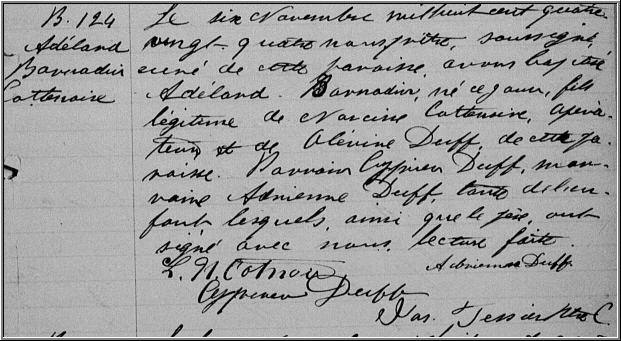 B. 124
Adéland
Barnadin
Cottenoire
Le six Novembre mil huit cent quatre
vingt-quatre nous prêtre, soussigné,
curé de cette paroisse, avons baptisé
Adéland Barnadin, né ce jour, fils
légitime de Narcisse Cottenoire, opéra-
teur et de Olévine Duff, de cette pa-
roisse. Parrain Cyprien Duff, mar-
raine Adrienne Duff, tante de l'en-
fant lesquels, ainsi que le père, ont
signé avec nous, lecture faite.
L. N. Cotnoir Adrienne Duff
Cyprien Duff
Jos. Tessier Ptre C.